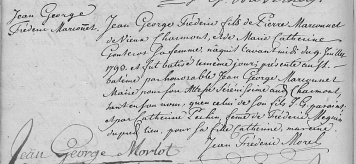 Jean George
Frédéric Marconet.
Jean George Frédéric fils de Pierre Marconnet
de Vieux Charmont, et de Marie Catherine
sa femme, naquit avant midi du 9. Juillet
1790. et fut batisé le même jour présenté au St.
batême par honorable Jean George Marconnet
Maire pour son Altesse Sérénissime au Charmont,
tant en son nom, que celui de son fils J. G. parains
et par Catherine femme de Frédéric Mequin
du pour sa fille Catherine, mareine.
Jean George Morlot Jean Frédéric Morel